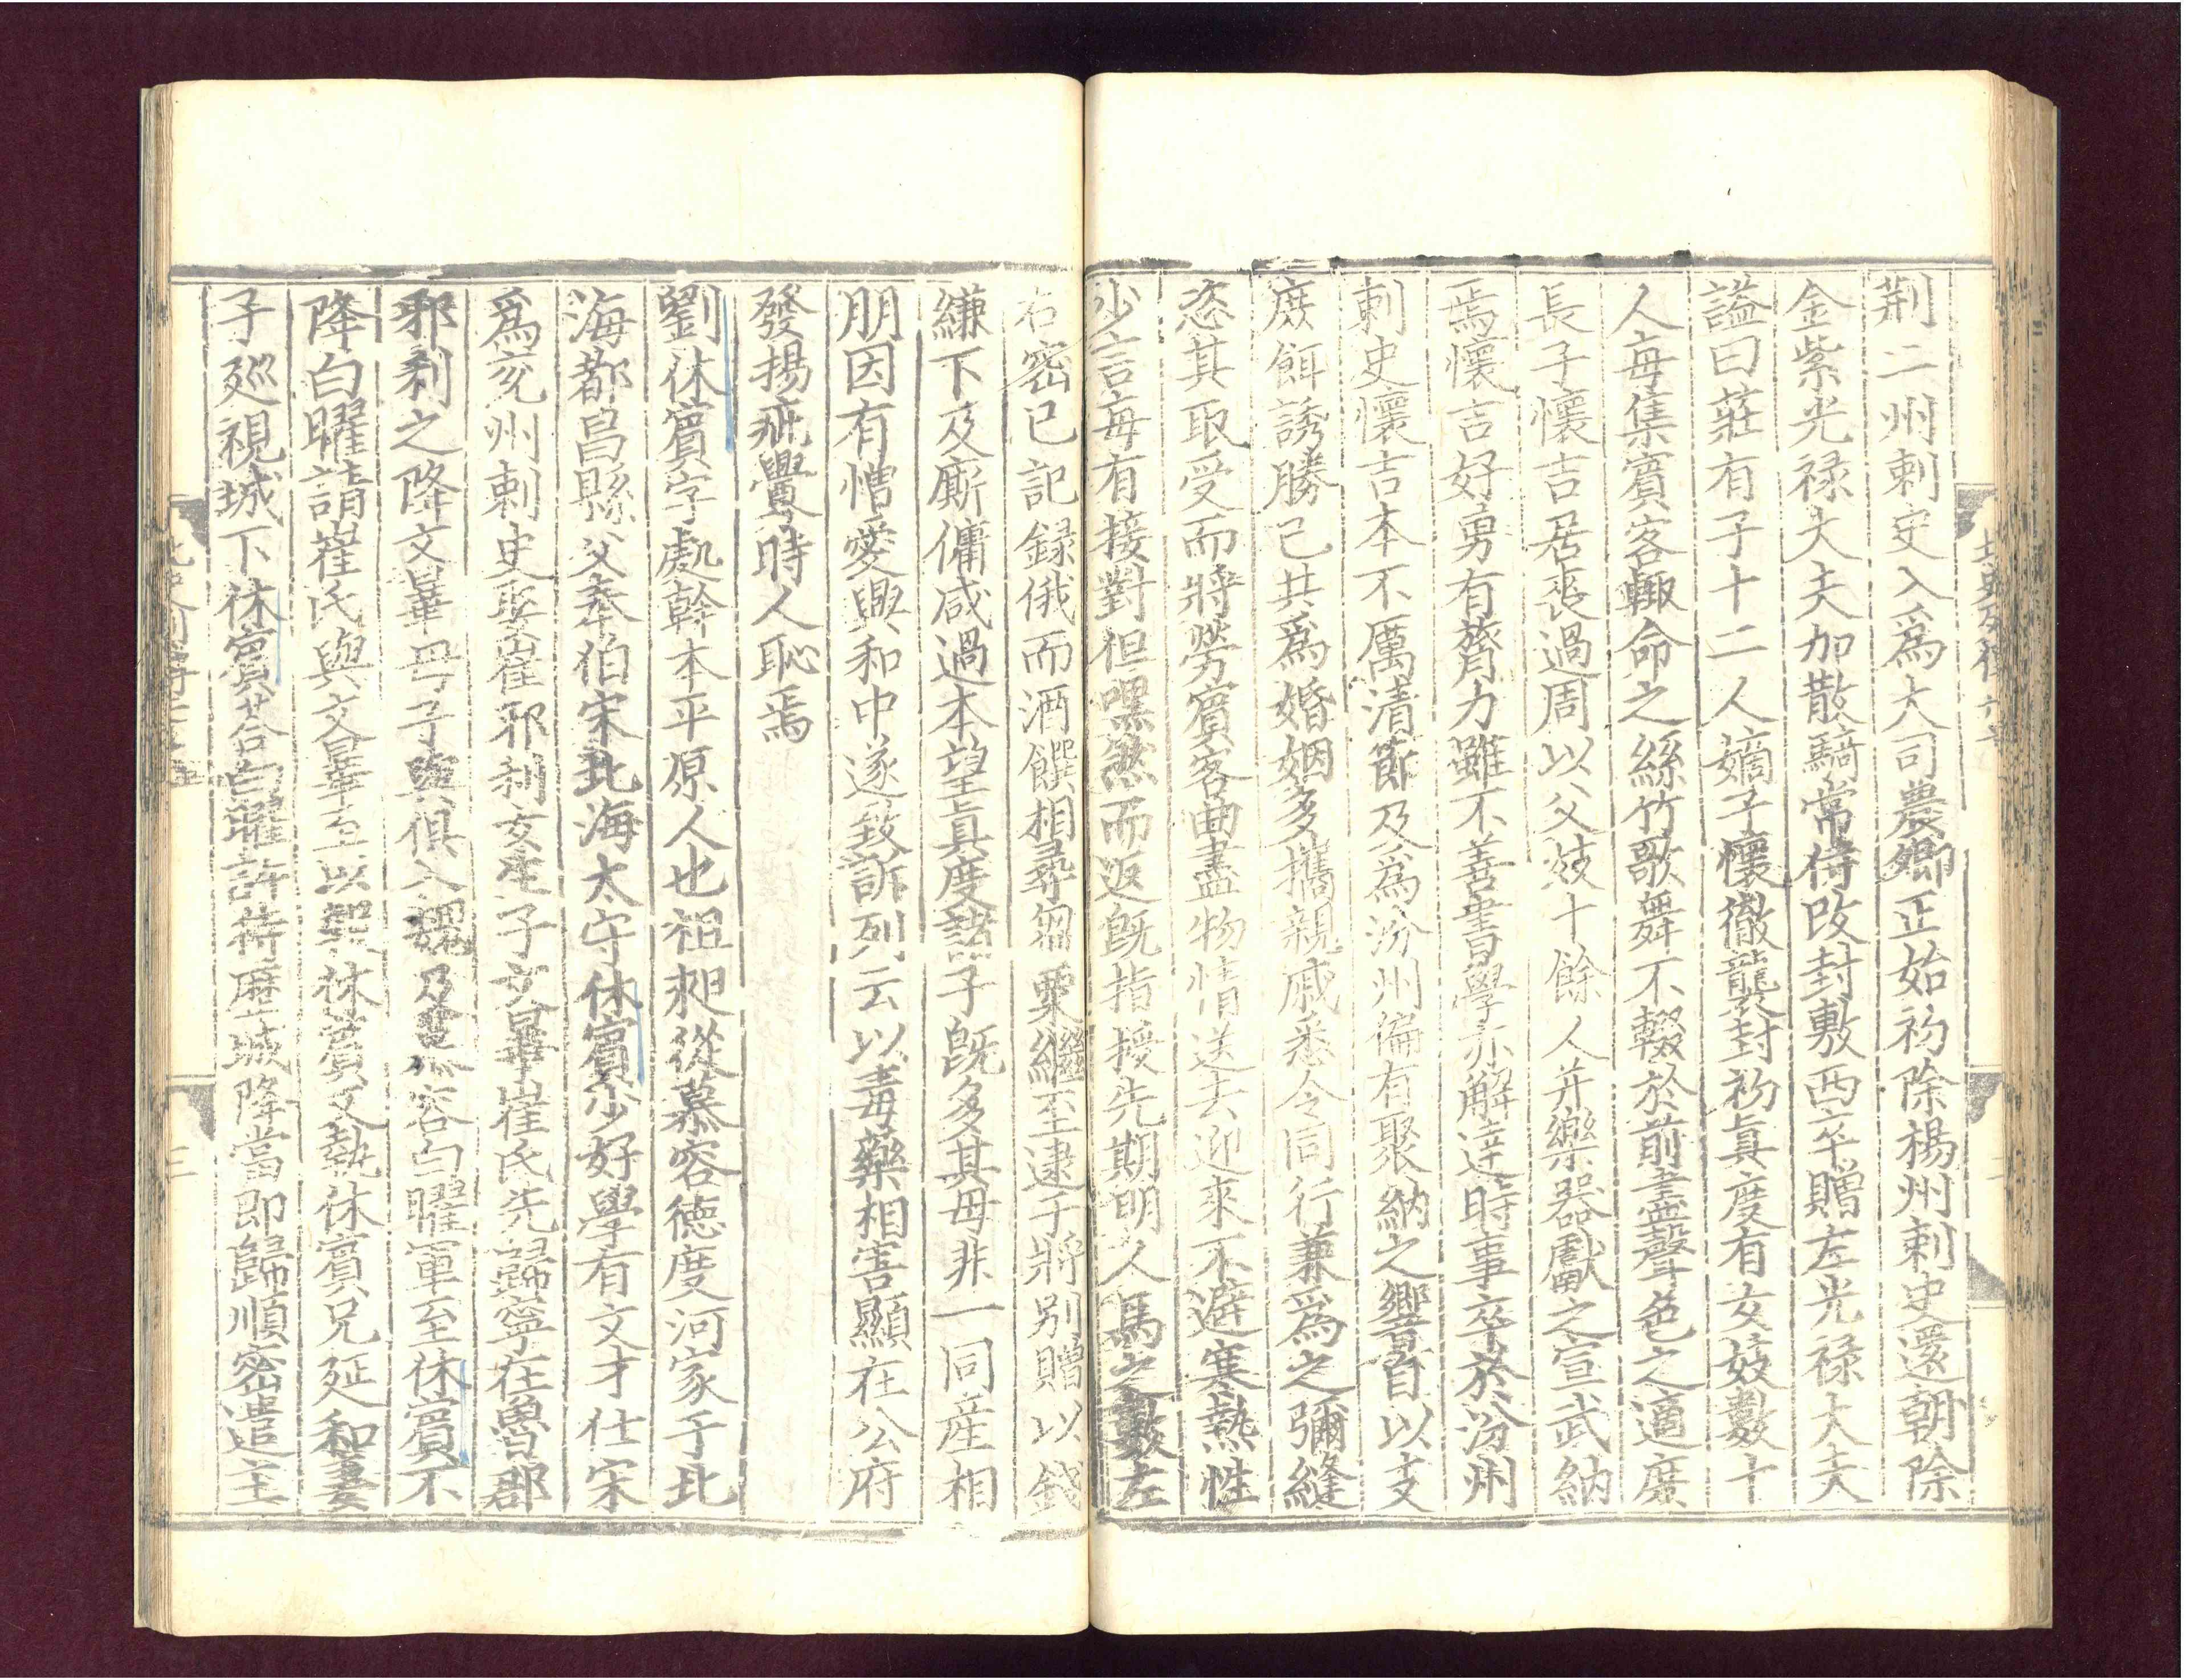 荆二州刺史入爲大司農卿正始初除楊州刺史還朝除
金紫光禄大夫加散騎常侍改封敷西卒贈左光禄大夫
謚曰莊有子十二人嫡子懷徹襲封初眞度有女妓數十
人每集賓客輙命之絲竹歌舞不輟於前盡聲色之適庶
長子懷吉居喪過周以父妓十餘人并樂器獻之宣武納
焉懷吉好勇有膂力雖不善書學亦解達時事卒於汾州
刺史懷吉本不厲清節及爲汾州偏有聚納之響自以支
庶餌誘勝己共爲婚姻多攜親戚悉令同行兼爲之彌縫
恣其取受而將勞賓客曲盡物情送去迎來不避寒熱性
少言每有接對但嘿然而返旣指授先期明人馬之數左
右密已記録俄而酒饌相尋芻粟繼至逮于將别贈以錢
縑下及廝傭咸過本望眞度諸子旣多其母非一同産相
朋因有憎愛興和中遂致訴列云以毒藥相害顯在公府
發揚疵釁時人恥焉
劉休賓字處幹本平原人也祖昶從慕容徳度河家于北
海都昌縣父奉伯宋北海太守休賓少好學有文才仕宋
爲兖州刺史娶崔邪利女生子文曄崔氏先歸寧在魯郡
邪利之降文曄母子與俱入魏及慕容白曜軍至休賓不
降白曜請崔氏與文曄至以報休賓又執休賓兄延和妻
子廵視城下休賓荅白曜許待歴城降當即歸順密遣主
三